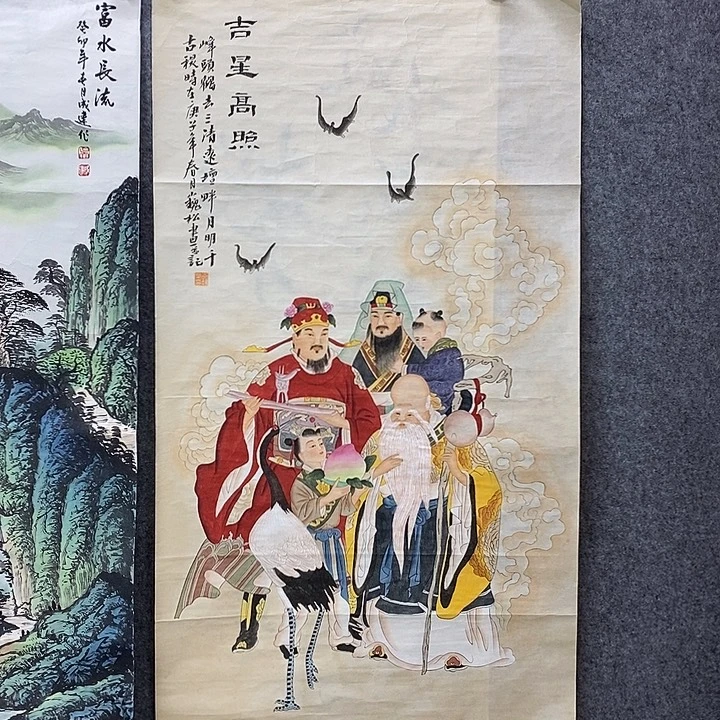 吉星高照
峰頭鶴去三清遠壇畔月明千
古時在庚子年春月巍松書
富水長流
癸卯年春月成建作